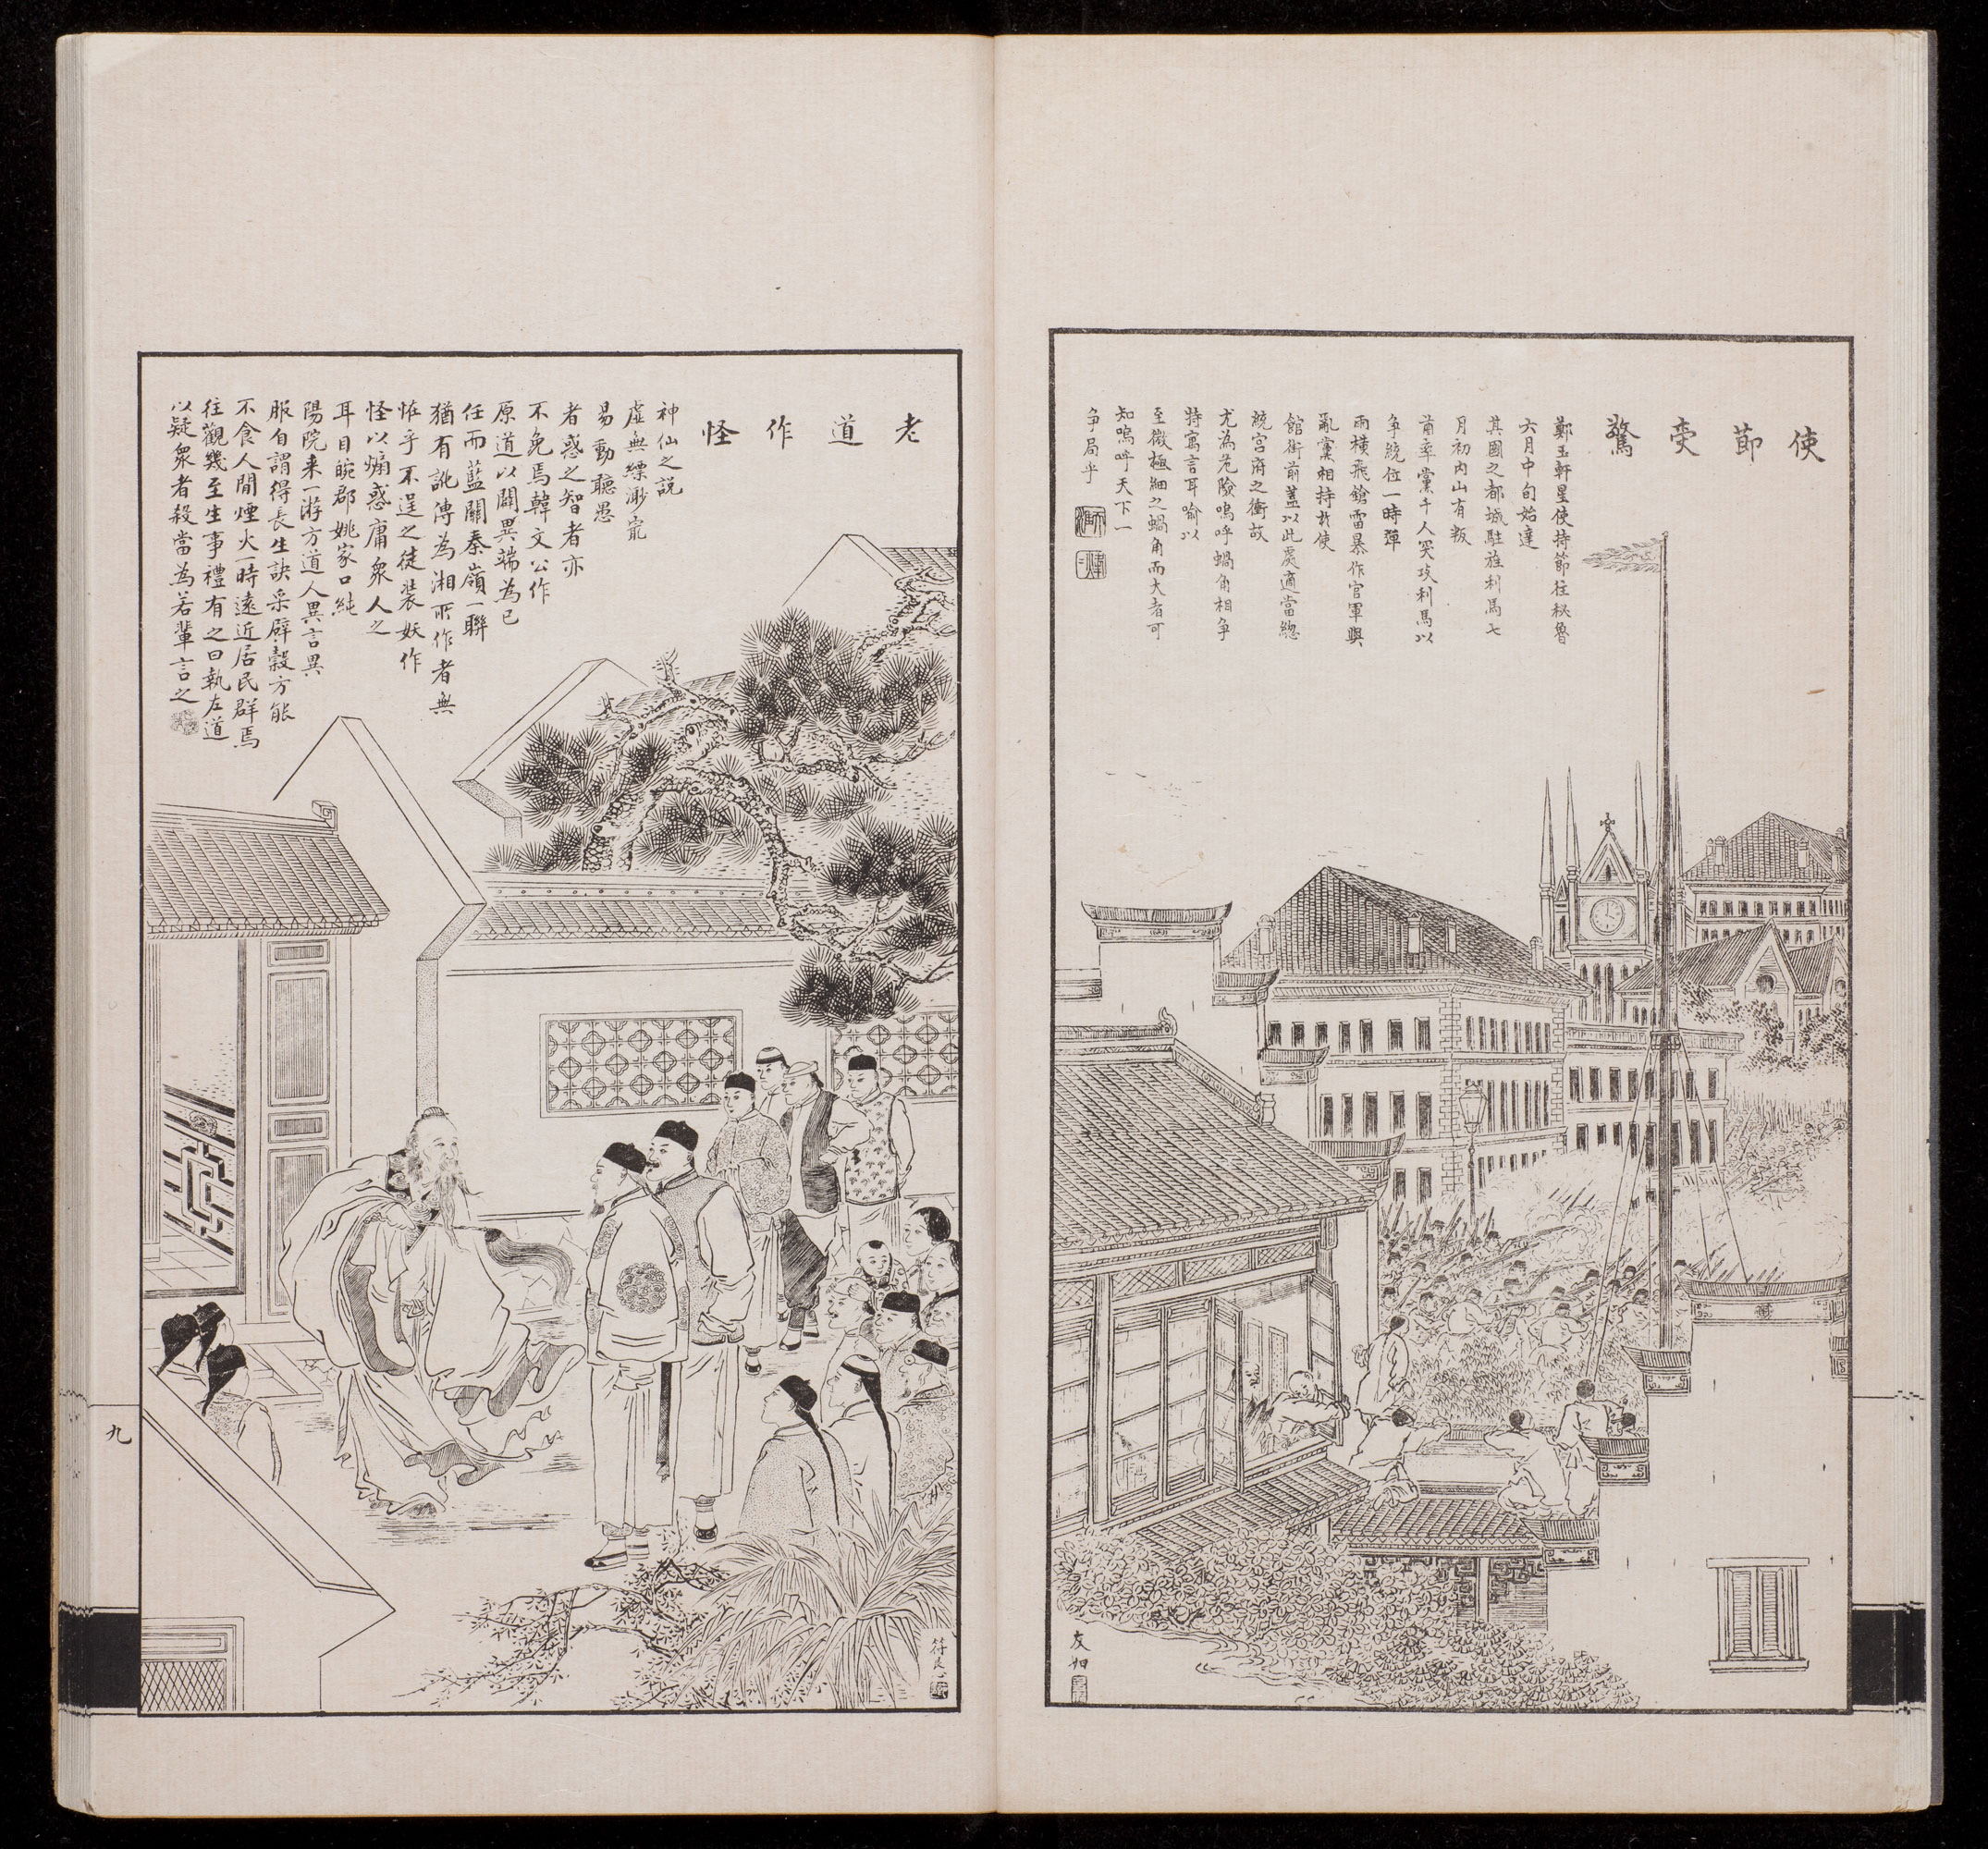 使節受驚
鄭玉軒星使持節往秘魯
六月中旬始達
其國之都城駐旌利馬七
月初內山有叛
酋率黨千人突攻利馬以
爭統位一時彈
雨橫飛鎗雷暴作官軍與
亂黨相持於使
館街前蓋以此處適當總
統宮府之衝故
尤為危險嗚呼蝸角相爭
特寓言耳喻以
至微極細之蝸角而大者可
知嗚呼天下一
爭局乎
友如
老道作怪
神仙之説
虛無縹渺㝡
易動聽愚
者惑之智者亦
不免焉韓文公作
原道以闢異端為己
任而藍關秦嶺一聯
猶有訛傳為湘所作者無
怪乎不逞之徒裝妖作
怪以煽惑庸衆人之
耳目皖郡姚家口純
陽院来一游方道人異言異
服自謂得長生訣采辟穀方能
不食人間煙火一時遠近居民群焉
往觀幾至生事禮有之曰執左道
以疑衆者殺當為若輩言之
九